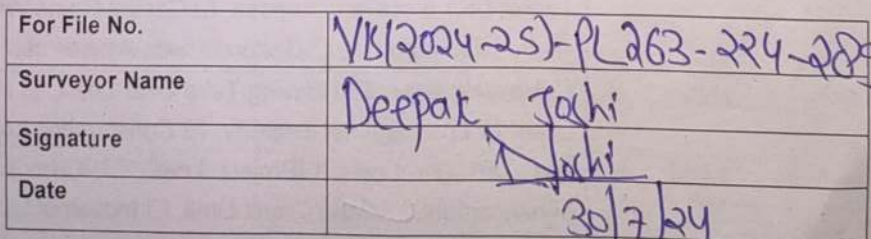 For File No. VIS(2024-25)-PL263-224-28
Surveyor Name Deepak Joshi
Signature DJoshi
Date 30/7/24